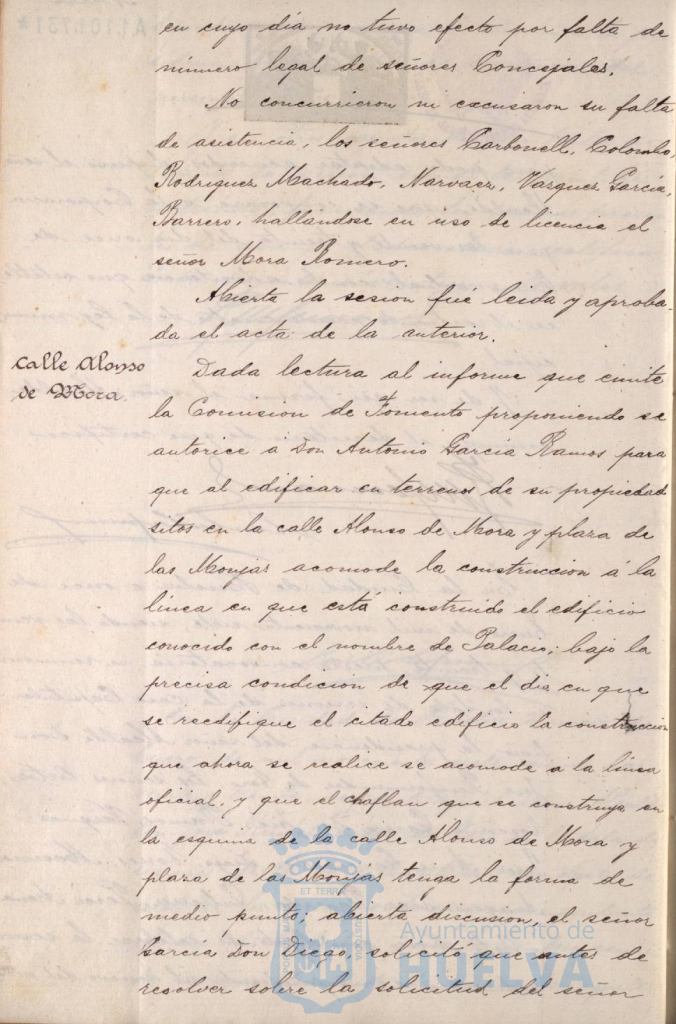 en cuyo dia no tuvo efecto por falta de
número legal de señores Concejales.
No concurrieron ni excusaron su falta
de asistencia, los señores Carbonell, Colombo,
Rodriguez Machado, Narvaez, Vazquez, Garcia,
Barrero, hallándose en uso de licencia el
señor Mora Romero.
Abierta la sesion fué leida y aproba-
da el acta de la anterior.
Calle Alonso
de Mora.
Dada lectura al informe que emite
la Comision de Fomento proponiendo se
autorice á Don Antonio Garcia Ramos para
que al edificar en terrenos de su propiedad
sitos en la calle Alonso de Mora y plaza de
las Monjas acomode la construccion á la
línea en que está construido el edificio
conocido con el nombre de Palacio; bajo la
precisa condicion de que el dia en que
se reedifique el citado edificio la construccion
que ahora se realice se acomode á la línea
oficial, y que el chaflan que se construya en
la esquina de la calle Alonso de Mora y
plaza de las Monjas tenga la forma de
medio punto; abierta discusion, el señor
Garcia Don Diego, solicitó que antes de
resolver sobre la solicitud del señor
Ayuntamiento de
HUELVA